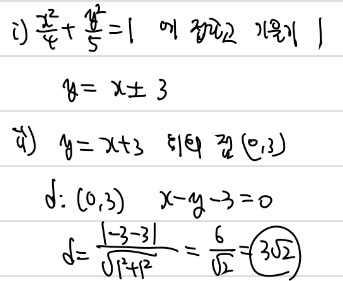 i) x²/4 + y²/5 = 1 에 접하고 기울기 1
y = x ± 3
ii) y = x+3 위의 점 (0,3)
d: (0,3) x-y-3=0
d = |-3-3|/√(1²+1²) = 6/√2 = 3√2